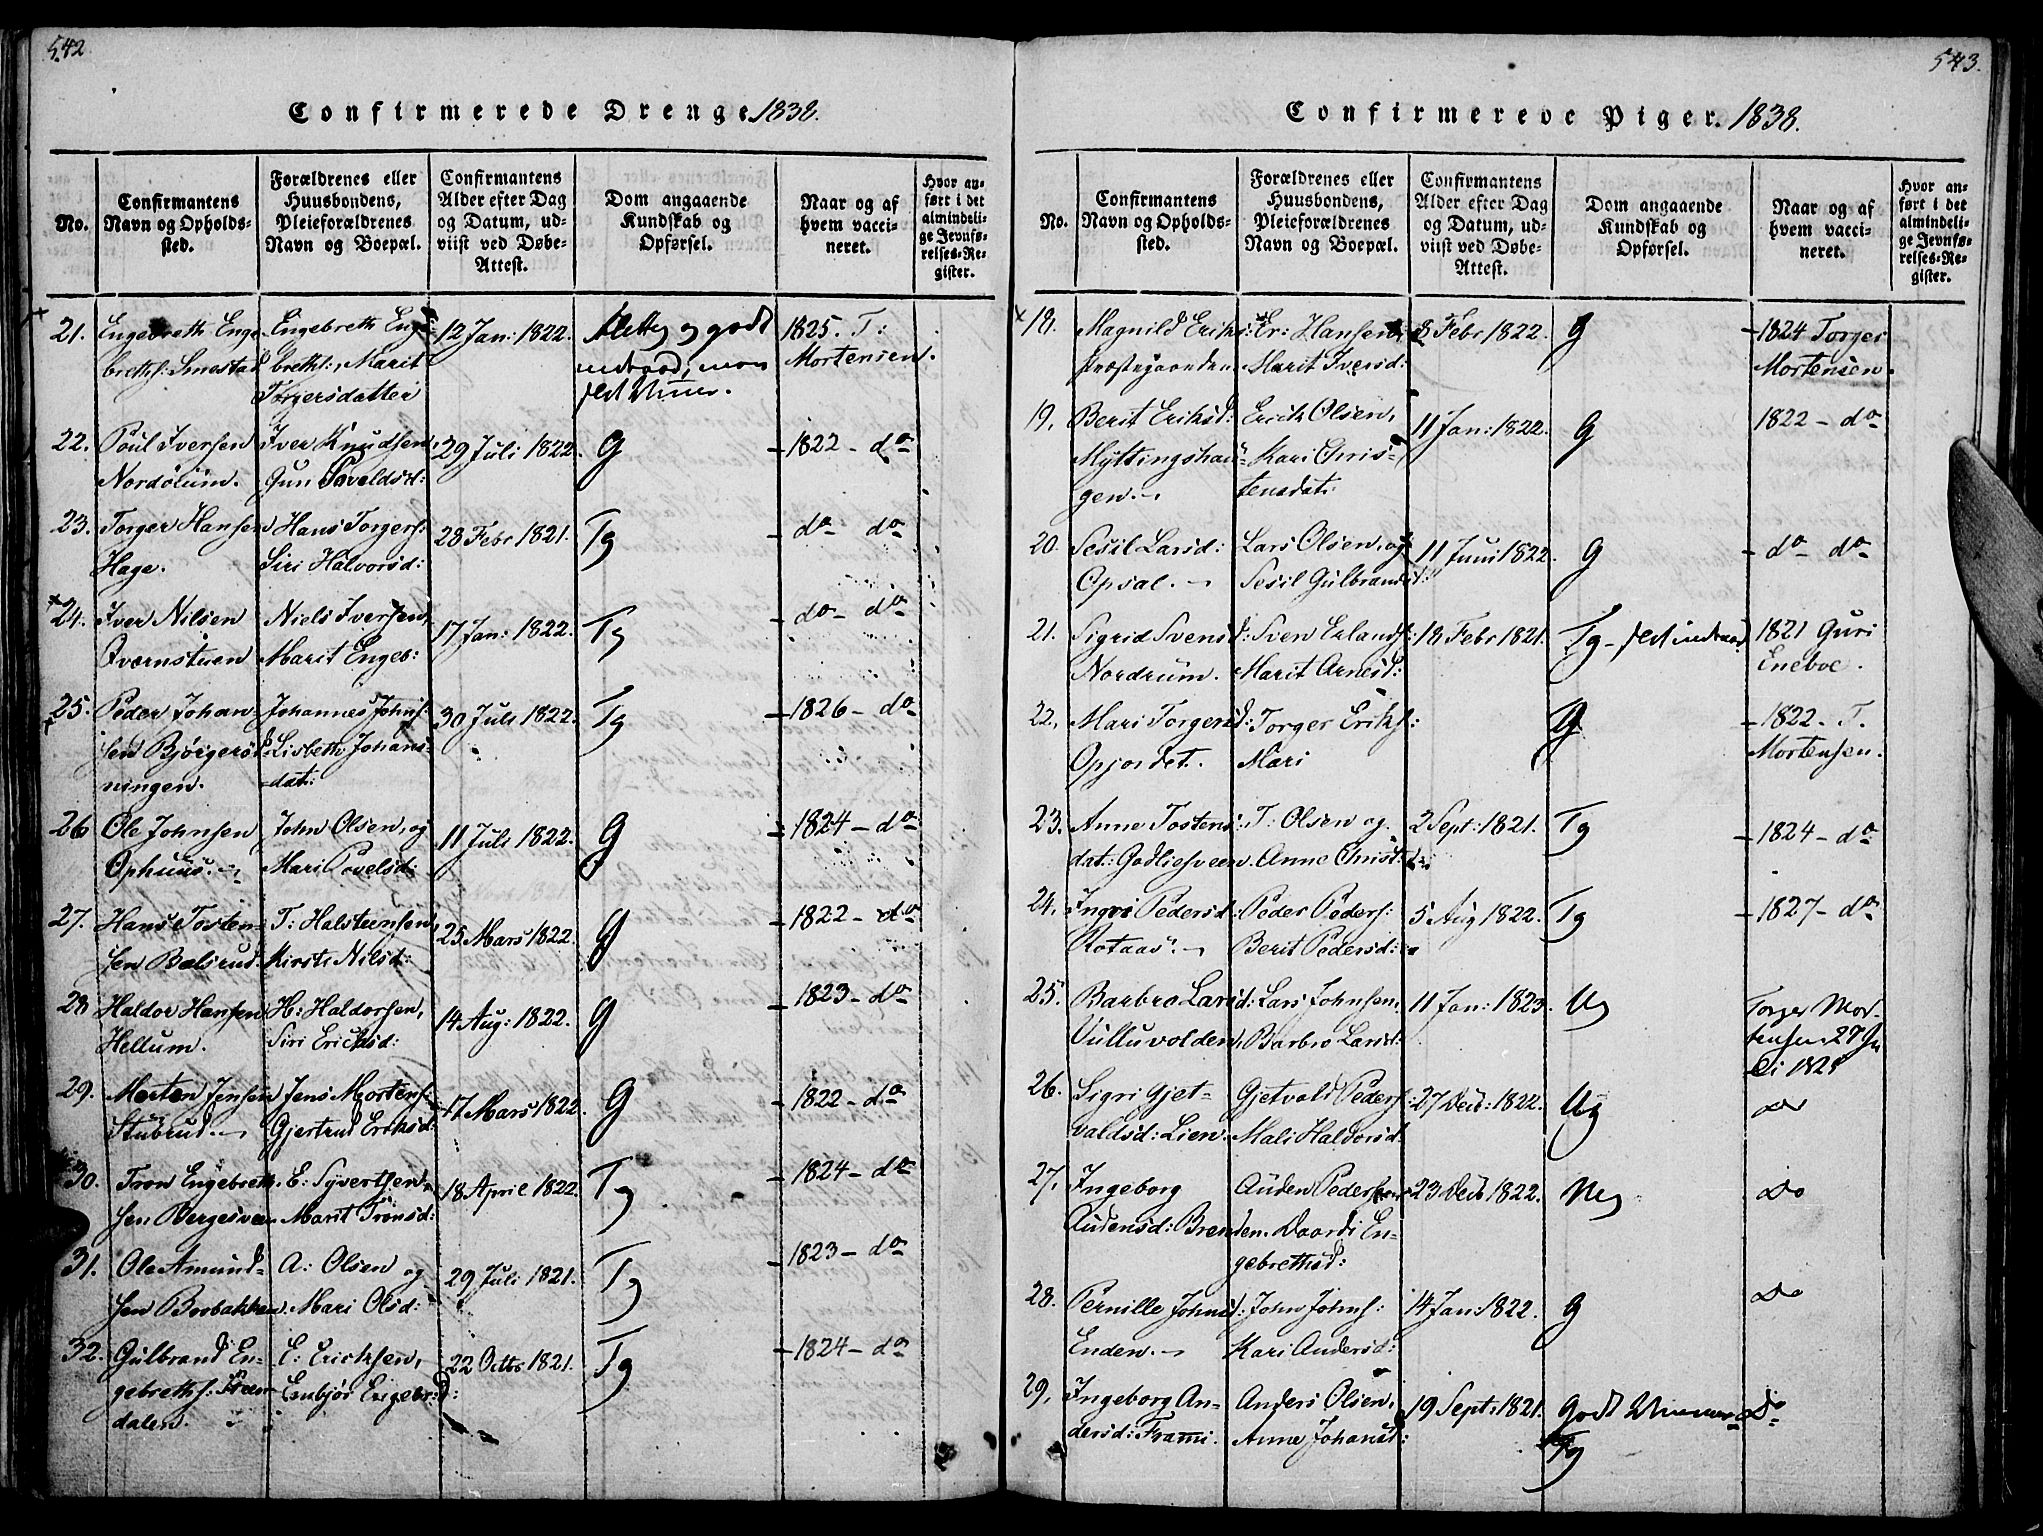 542
Confirmerede Drenge 1838.
No.
Confirmantens Navn og Opholdssted.
Forældrenes eller Huusbondens, Pleieforældrenes Navn og Boepæl.
Confirmantens Alder efter Dag og Datum, udviist ved Døbe-Attest.
Dom angaaende Kundskab og Opførsel.
Maar og af hvem vaccineret.
Hvor anført i det almindelige Jevnførelses-Register.
21. Engebreth Enge- Engebreth Enge- 12 Jan: 1822. og godt 1825. T:
breths: Smestad breths:, Marit Mortensen.
Torgersdatter
22. Poul Iversen Iver Knudsen, 29 Juli 1822. G 1822 - do
Nordølum. Gun Povelsd:
23. Torger Hansen Hans Torgers: 28 Febr 1821. Tg do do
Hage. Siri Halvorsd:
24. Iver Nilsen Niels Iversen, 17 Jan: 1822. Tg do - do
Qvernstuen Marit Engeb:
25. Peder Johan- Johannes Johns: 30 Juli 1822. Tg 1826 - do
sen Bjørgerød- Lisbeth Johans-
ningen. dat:
26 Ole Johnsen John Olsen, og 11 Juli 1822. G 1824 - do
Ophuus. Mari Povelsd:
27. Hans Tosten- T: Halsteensen, 25 Mars 1822. G 1822 - do
sen Bælsrud. Kirsti Nilsd:
28 Haldor Hansen H: Haldorsen, 14 Aug: 1822. G 1823 - do
Hellum. Siri Ericksd:
29. Morten Jensen Jens Mortens: 17 Mars 1822. G 1822 - do
Stubrud. Gjertrud Eriksd:
30. Tron Engebreth- E: Syvertsen, 18 April 1822. Tg 1824 - do
sen Bergesveen Marit Tronsd:
31. Ole Amund- A: Olsen og 29 Juli 1821. Tg 1823 - do
sen Berbakken. Mari Olsd:
32. Gulbrand En- E: Ericksen, 22 Octb 1821. Tg 1824 - do
gebreths: Engebrd:
dalen.
543.
Confirmerede Piger. 1838.
No.
Confirmantens Navn og Opholdssted.
Forældrenes eller Huusbondens, Pleieforældrenes Navn og Boepæl.
Confirmantens Alder efter Dag og Datum, udviist ved Døbe-Attest.
Dom angaaende Kundskab og Opførsel.
Maar og af hvem vaccineret.
Hvor anført i det almindelige Jevnførelses-Register.
18. Magnild Eriks: Er: Hansen 8 Febr 1822. G 1824 Torger
Præstegaarden Marit Iversd: Mortensen.
19. Berit Eriksd: Erich Olsen, 11 Jan: 1822. G 1822 - do
Myttingshau- Kari Chris-
gen. tensdat:
20. Sesil Larsd: Lars Olsen, og 11 Juni 1822. G do do
Opsal. Sesil Gulbrandsd:
21. Sigrid Svensd: Sven Erlands: 18 Febr 1821. Tg 1821 Guri
Nordrum. Marit Arnesd: Eneboe.
22. Mari Torgersd: Torger Eriks: G 1822. T.
Opjordet. Mari Mortensen.
23. Anne Tostens: T: Olsen og 2 Sept: 1821. Tg 1824 - do
dat: Godlieveen. Anne Christ:
24. Ingri Pedersd: Peder Peders: 5 Aug 1822. Tg 1827 - do
Rotaas. Berit Pedersd:
25. Barbro Larsd: Lars Johnsen, 11 Jan: 1823. Ug Torger Mor-
Ulluvolden. Barbro Larsd: tensen 27 Ju
li 1825
26. Sigri Gjet- Gjetvold Peders: 27 Decb: 1822. Ug do
valdsd: Lien. Mali Haldorsd:
27. Ingeborg Auden Pedersen 23 Decb 1822. Mg Do
Audensd: Brenden. Daardi En-
gebrethsd:
28. Pernille Johnsd: John Johns: 14 Jan: 1822. G Do
Enden. Kari Andersd:
29. Ingeborg An- Anders Olsen, 19 Sept: 1821. Godt Do
dersd: Frami. Anne Johansd: Tg